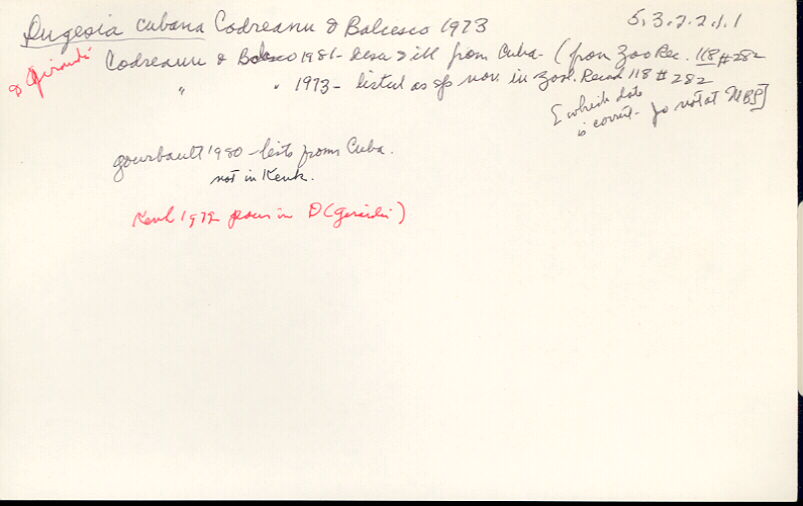 Dugesia cubana Codreanu & Balcesco 1973
5.3.2.2.1.1
D Girardi
Codreanu & Balcesco 1981 - Desc & ill from Cuba - (from Zoo Rec. 118 # 282
" " 1973 - listed as sp nov. in Zool. Record 118 # 282
[which date
is correct - not at MBS]
Gourbault 1980 - lists from Cuba.
not in Kenk.
Kenk 1972 in D (Girardia)